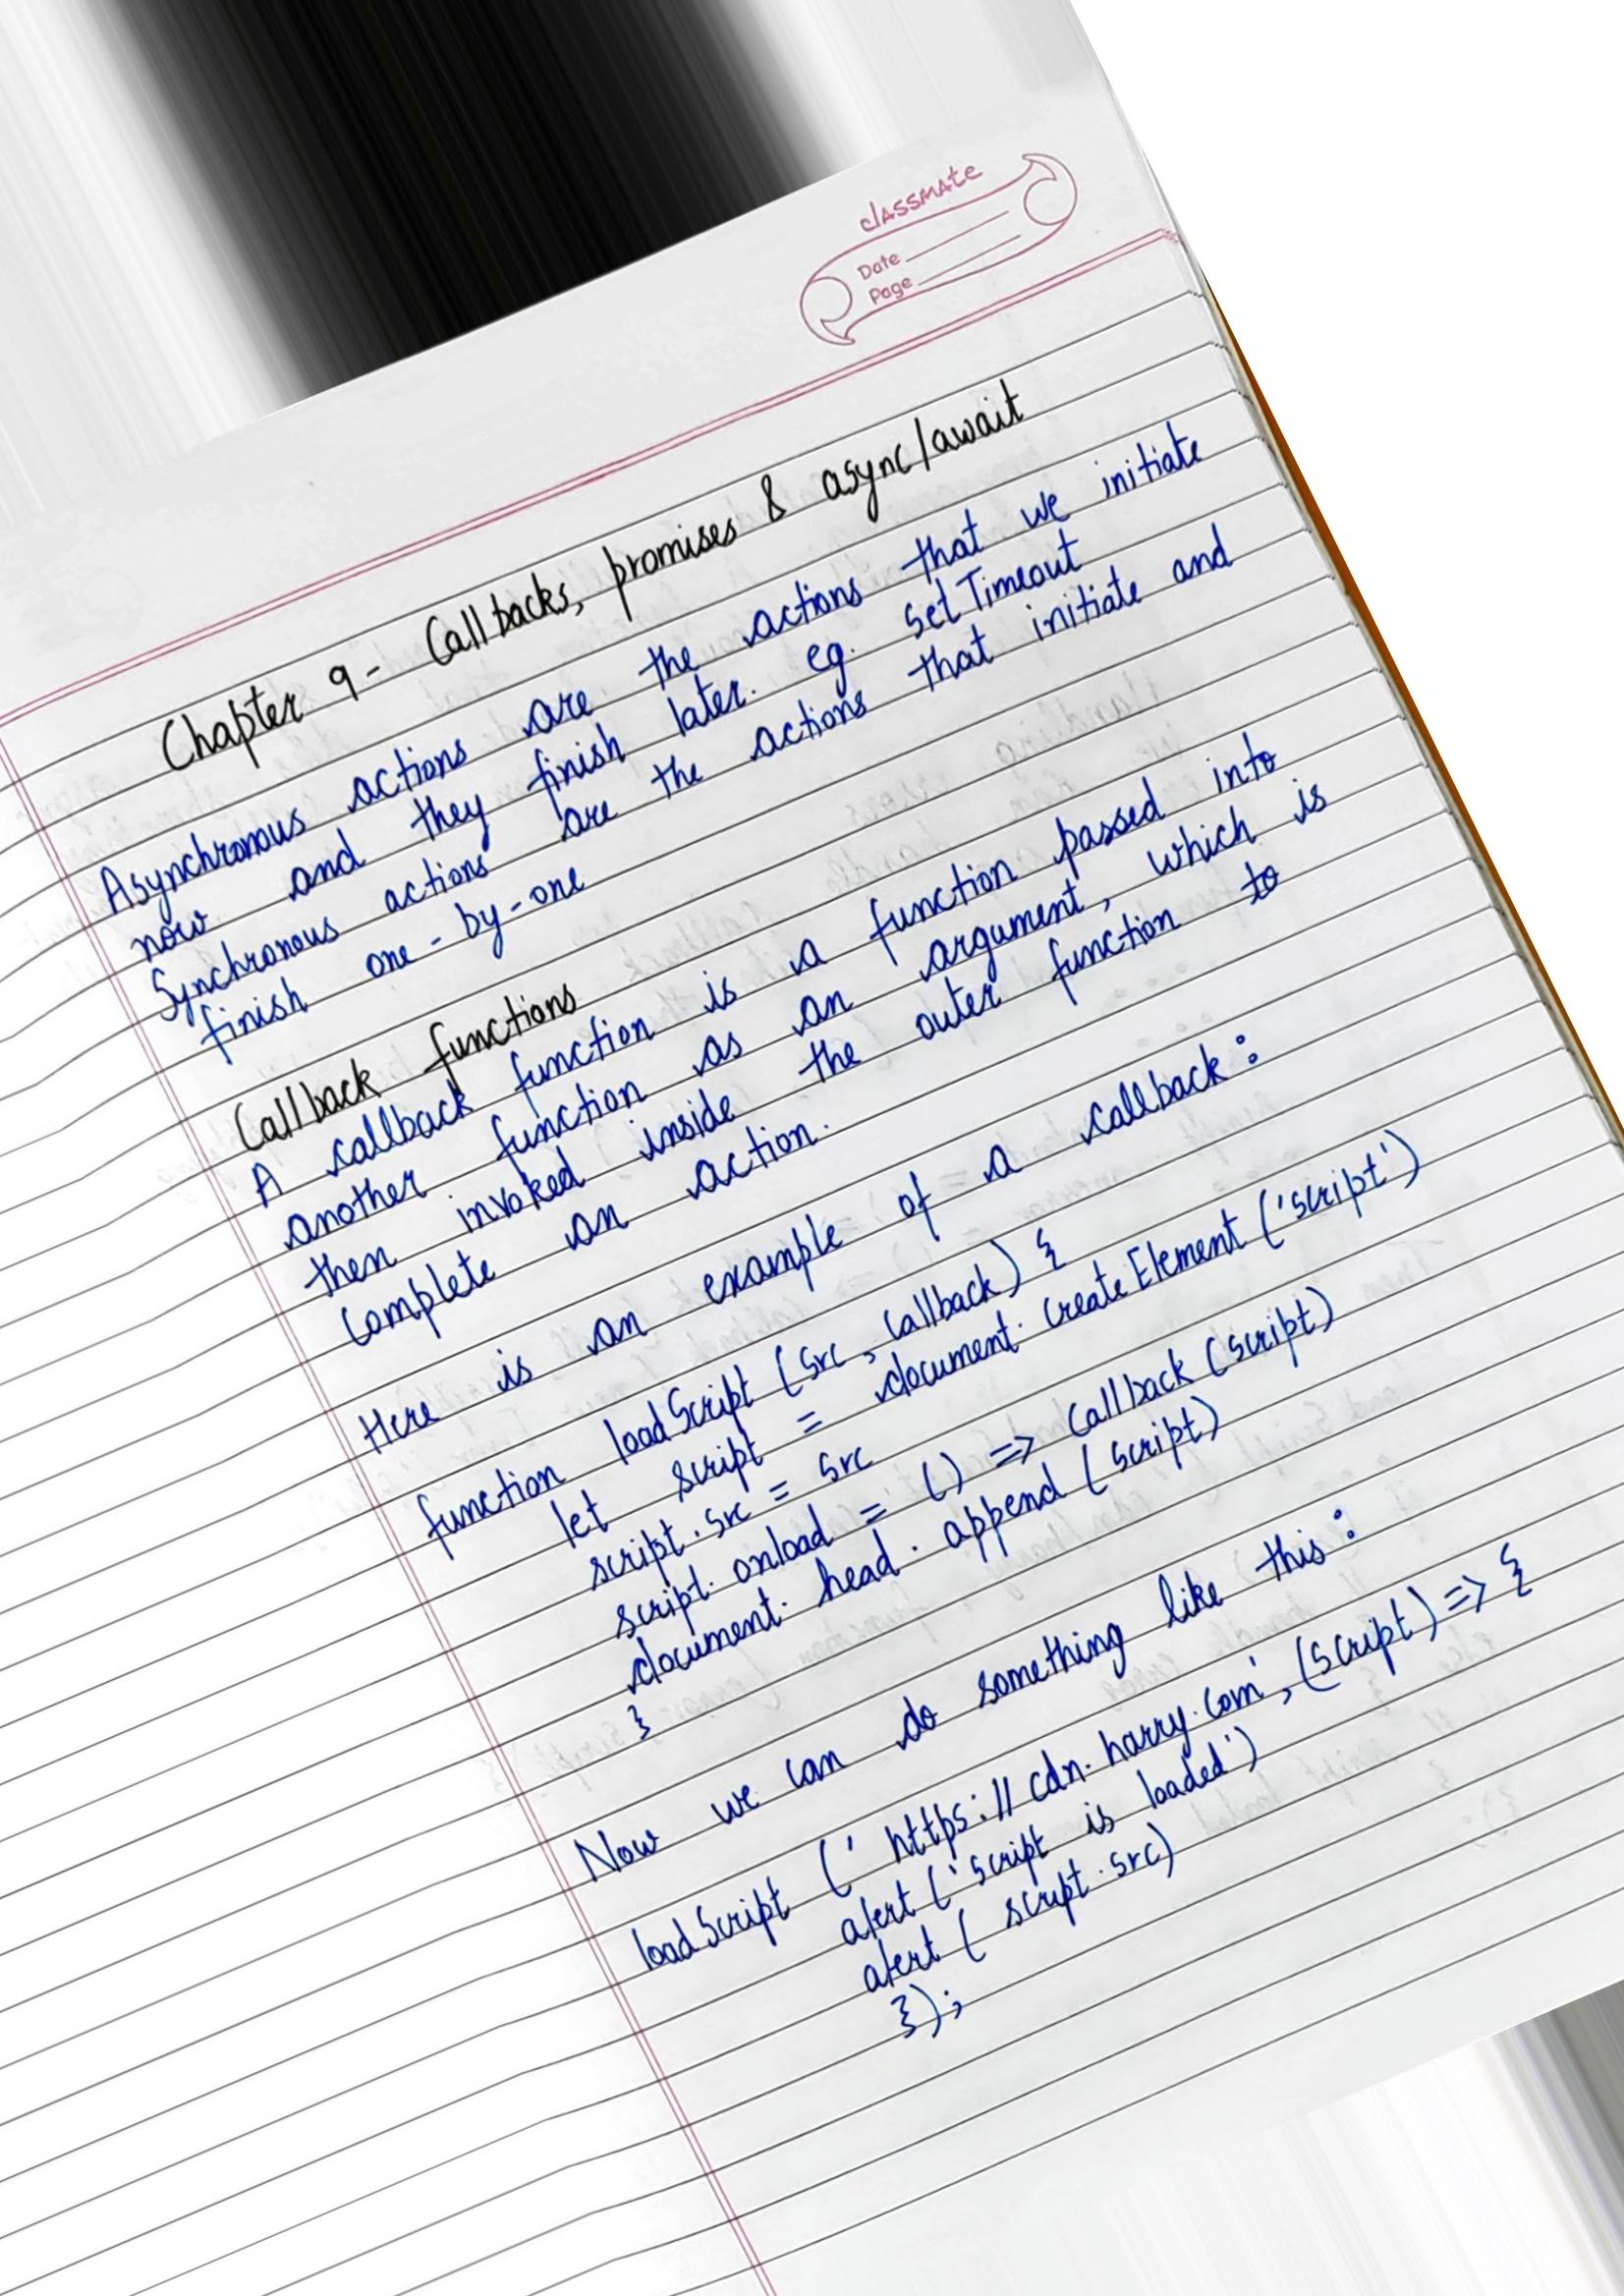 classmate
Date
Page
Chapter 9 - Callbacks, promises & async/await
Asynchronous actions are the actions that we initiate
now and they finish later. eg. setTimeout
Synchronous actions are the actions that initiate and
finish one-by-one
Callback functions
A callback function is a function passed into
another function as an argument, which is
then invoked inside the outer function to
complete an action.
Here is an example of a callback:
function loadScript (src, callback) {
let script = document.createElement('script')
script.src = src
script.onload = () => callback(script)
document.head.append(script)
}
Now we can do something like this:
loadScript ('https://cdn.harry.com', (script) => {
alert ('script is loaded')
alert ( script.src)
});